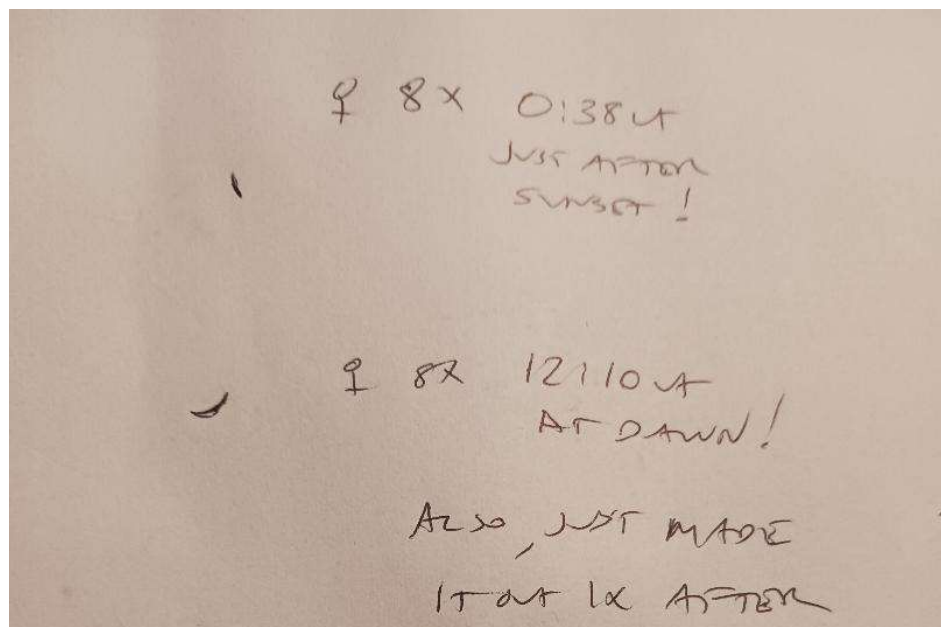 ♀ 8X 0:38 UT
JUST AFTER
SUNSET!
♀ 8X 12:10 UT
AT DAWN!
ALSO, JUST MADE
IT OUT 1X AFTER